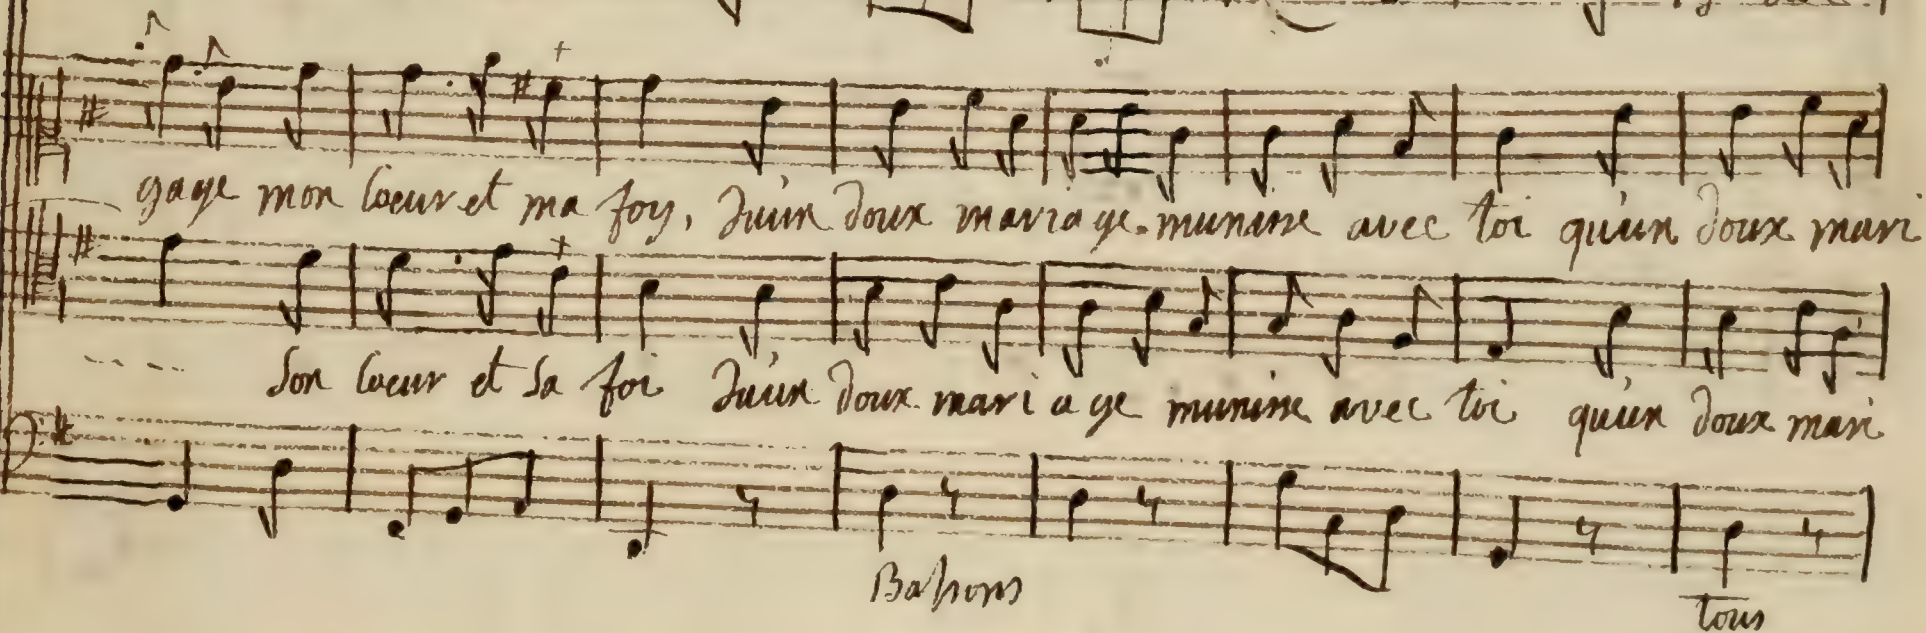 gage mon Coeur et ma foy, Qu'un doux mariage munisse avec toi qu'un doux mari
Son Coeur et Sa foi Qu'un doux mariage munisse avec toi qu'un doux mari
Bassons
tous